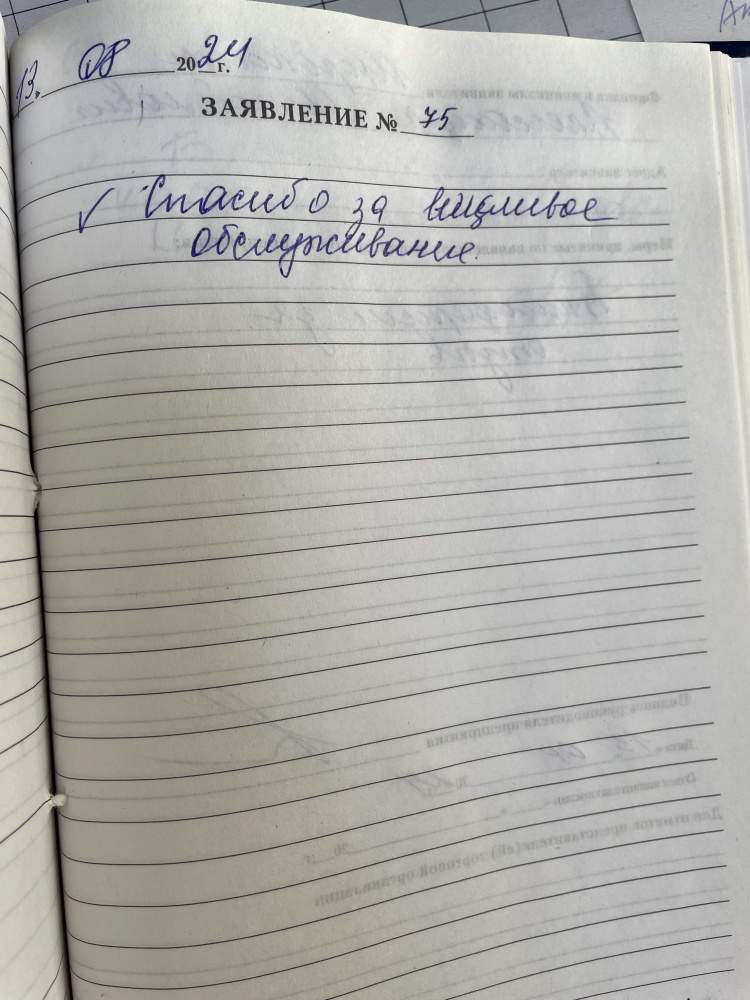 13. 08 2024 г.
ЗАЯВЛЕНИЕ № 75
✓ Спасибо за вижливое
обслуживание.